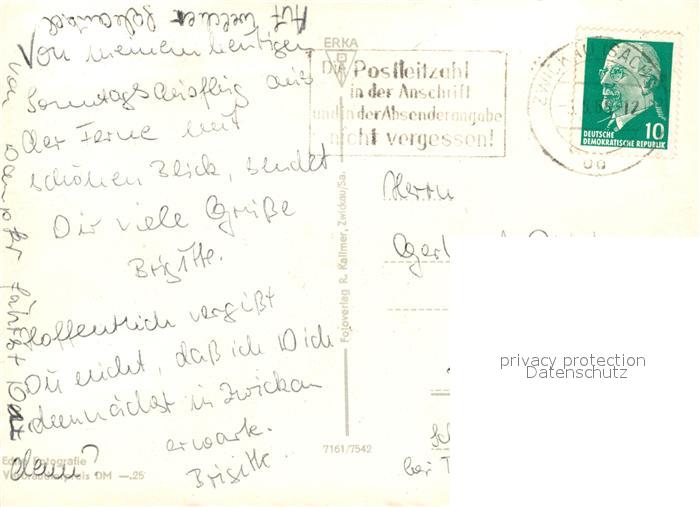 Auf welcher
Von meinem heutigen
Sonntagsausflug aus
der Ferne mit
schönen Blick, sendet
Dir viele Grüße
Brigitte.
Hoffentlich vergißt
Du nicht, daß ich Dich
demnächst in Zwickau
erwarte.
Brigitte.
Von
Dampfer fährst Du
denn?
Fotografie
Verbraucherpreis DM —.25
ERKA
Die Postleitzahl
in der Anschrift
und in der Absenderangabe
nicht vergessen!
ZWICKAU
DEUTSCHE
DEMOKRATISCHE REPUBLIK
10
Fotoverlag R. Kallmer, Zwickau/Sa.
7161/7542
Herrn
bei
privacy protection
Datenschutz